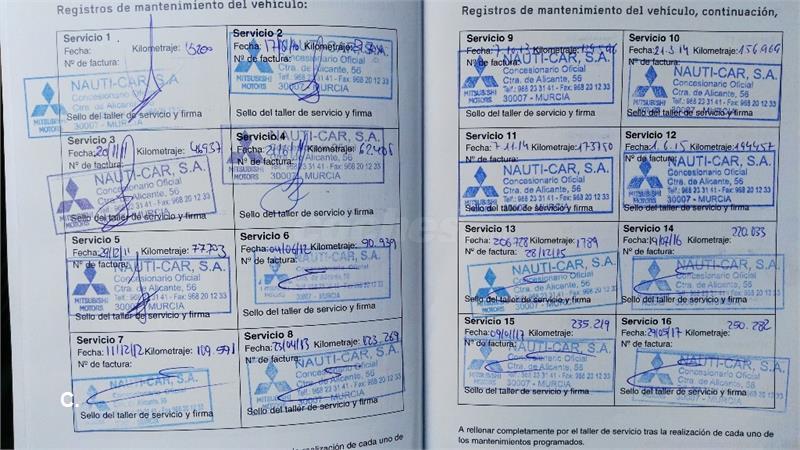 Registros de mantenimiento del vehículo:
Servicio 1
Fecha: Kilometraje: 15200
Nº. de factura:
NAUTI-CAR, S.A.
Concesionario Oficial
Ctra. de Alicante, 56
MITSUBISHI
MOTORS
30007 - MURCIA
Sello del taller de servicio y firma
Servicio 2
Fecha: Kilometraje:
Nº de factura:
NAUTI-CAR, S.A.
Concesionario Oficial
Ctra. de Alicante, 56
Telf.: 968 23 31 41 - Fax: 968 20 12 33
30007 - MURCIA
MITSUBISHI
MOTORS
Sello del taller de servicio y firma
Servicio 3
Fecha: Kilometraje: 46937
Nº de factura:
NAUTI-CAR, S.A.
Concesionario Oficial
Ctra. de Alicante, 56
968 23 31 41 - Fax: 968 20 12 33
MITSUBISHI
MOTORS
Sello del taller de servicio y firma
Servicio 4
Fecha: Kilometraje: 62406
Nº de factura:
NAUTI-CAR, S.A.
Concesionario Oficial
de Alicante, 56
968 23 31 41 - Fax: 968 20 12 33
MITSUBISHI
MOTORS
MURCIA
Sello del taller de servicio y firma
Servicio 5
Fecha: 29/12/11 Kilometraje: 77703
Nº de factura:
NAUTI-CAR, S.A.
Concesionario Oficial
Ctra. de Alicante, 56
Telf.: 968 23 31 41 - Fax: 968 20 12 33
30007 - MURCIA
MITSUBISHI
MOTORS
Sello del taller de servicio y firma
Servicio 6
Fecha: 04/06/12 Kilometraje: 90.939
Nº de factura:
NAUTI-CAR, S.A.
MITSUBISHI
MOTORS
30007 - MURCIA
Sello del taller de servicio y firma
Servicio 7
Fecha: 11/12/12 Kilometraje: 109.591
Nº de factura:
NAUTI-CAR, S.A.
Concesionario Oficial
Ctra. de Alicante, 56
Sello del taller de servicio y firma
Servicio 8
Fecha: 23/04/13 Kilometraje: 123.269
Nº de factura:
NAUTI-CAR, S.A.
Concesionario Oficial
Sello del taller de servicio y firma
C.
realización de cada uno de
Registros de mantenimiento del vehículo, continuación,
Servicio 9
Fecha: 7.10.13 Kilometraje:
Nº de factura:
NAUTI-CAR, S.A.
Concesionario Oficial
Ctra. de Alicante, 56
Telf.: 968 23 31 41 - Fax: 968 20 12 33
30007 - MURCIA
MITSUBISHI
MOTORS
Sello del taller de servicio y firma
Servicio 10
Fecha: 21.3.14 Kilometraje: 156.969
Nº de factura:
NAUTI-CAR, S.A.
Concesionario Oficial
Ctra. de Alicante, 56
Telf.: 968 23 31 41 - Fax: 968 20 12 33
30007 - MURCIA
MITSUBISHI
MOTORS
Sello del taller de servicio y firma
Servicio 11
Fecha: 7.11.14 Kilometraje: 173750
Nº de factura:
NAUTI-CAR, S.A.
Concesionario Oficial
Ctra. de Alicante, 56
Telf.: 968 23 31 41 - Fax: 968 20 12 33
30007 - MURCIA
MITSUBISHI
MOTORS
Sello del taller de servicio y firma
Servicio 12
Fecha: 1.6.15 Kilometraje: 194457
Nº de factura:
NAUTI-CAR, S.A.
Concesionario Oficial
Ctra. de Alicante, 56
Telf.: 968 23 31 41 - Fax: 968 20 12 33
30007 - MURCIA
MITSUBISHI
MOTORS
Sello del taller de servicio y firma
Servicio 13
Fecha: 206728 Kilometraje: 1789
Nº de factura: 28/12/15
NAUTI-CAR, S.A.
Concesionario Oficial
Ctra. de Alicante, 56
Sello del taller de servicio y firma
Servicio 14
Fecha: 14/07/16 Kilometraje: 220.033
Nº de factura:
NAUTI-CAR, S.A.
Concesionario Oficial
Sello del taller de servicio y firma
Servicio 15
Fecha: 09/01/17 Kilometraje: 235.219
Nº de factura:
NAUTI-CAR, S.A.
Concesionario Oficial
Ctra. de Alicante, 56
30007 - MURCIA
Sello del taller de servicio y firma
Servicio 16
Fecha: 29/05/17 Kilometraje: 250.282
Nº de factura:
NAUTI-CAR, S.A.
Concesionario Oficial
Ctra. de Alicante, 56
30007 - MURCIA
Sello del taller de servicio y firma
A rellenar completamente por el taller de servicio tras la realización de cada uno de
los mantenimientos programados.